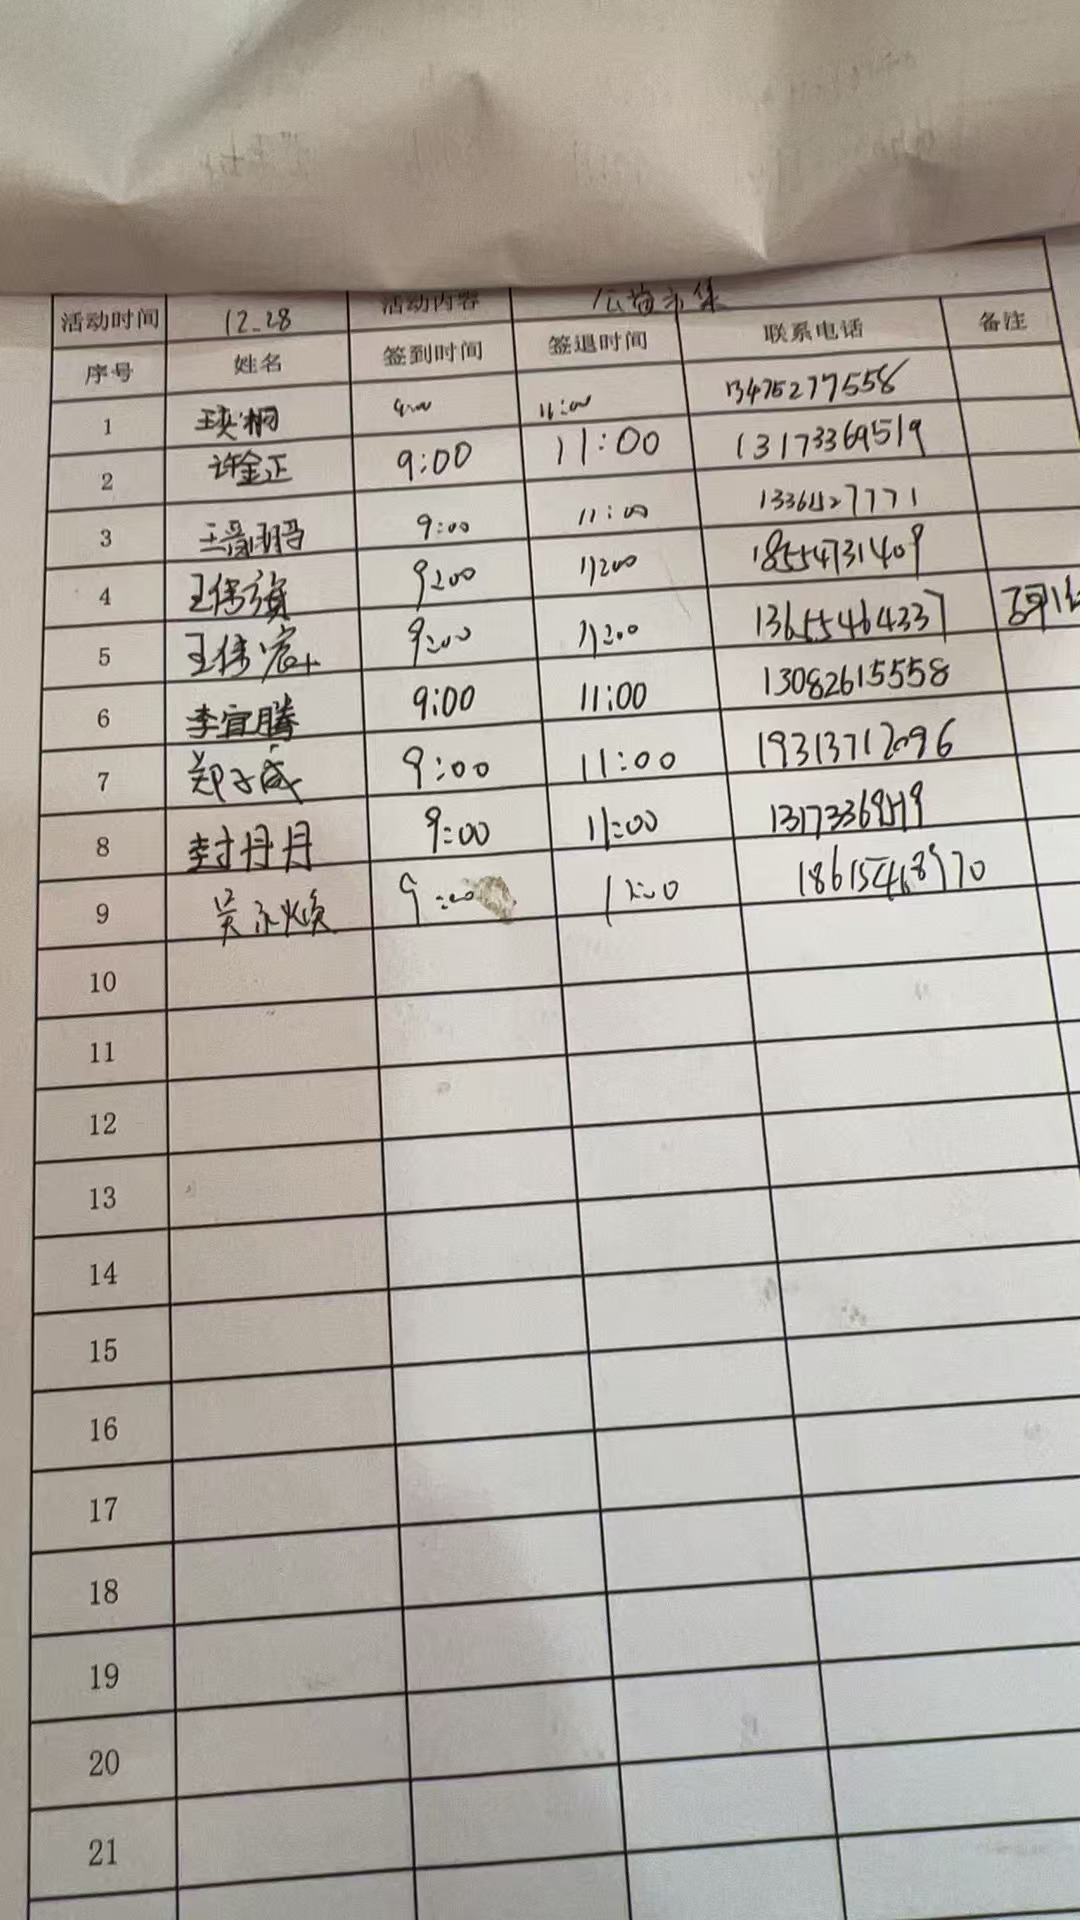 活动时间 12.28 活动内容 公益市集
序号 姓名 签到时间 签退时间 联系电话 备注
1 9:00 11:00 13475277558
2 许金正 9:00 11:00 13173369519
3 9:00 11:00
4 王伟 9:00 11:00 18554731409
5 王伟宸 9:00 11:00 13655464337
6 李宜腾 9:00 11:00 13082615558
7 郑子成 9:00 11:00 19313712096
8 封丹丹 9:00 11:00 13173369519
9 吴永焕 9:00
10
11
12
13
14
15
16
17
18
19
20
21